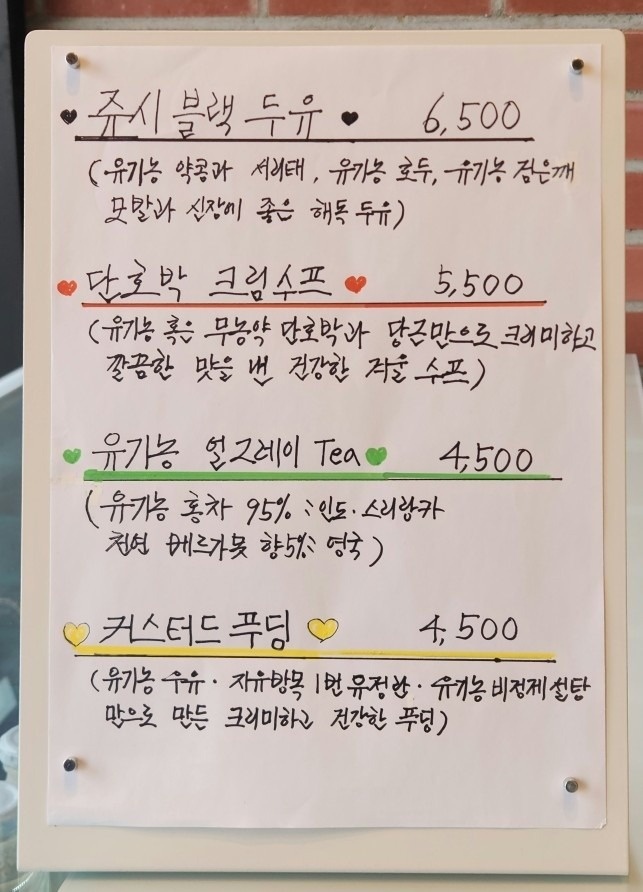 쥬시 블랙 두유 6,500
(유기농 약콩과 서리태, 유기농 호두, 유기농 검은깨
모발과 신장에 좋은 해독 두유)
단호박 크림수프 5,500
(유기농 혹은 무농약 단호박과 당근만으로 크리미하고
깔끔한 맛을 낸 건강한 겨울 수프)
유기농 얼그레이 Tea 4,500
(유기농 홍차 95% : 인도·스리랑카
천연 베르가못 향5% : 영국)
커스터드 푸딩 4,500
(유기농 우유· 자유방목 1번 유정란· 유기농 비정제 설탕
만으로 만든 크리미하고 건강한 푸딩)